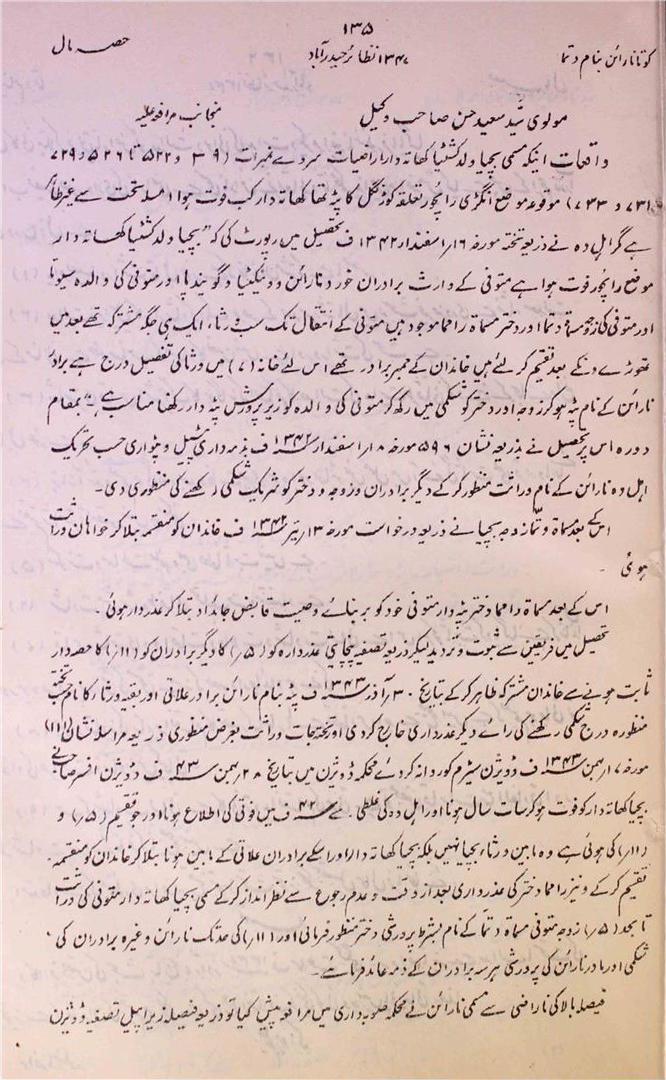 ۱۳۵
کوتانارائن بنام دتما ۱۳۴۷ نظائر حیدرآباد حصہ مال
مولوی سید سعید حسن صاحب وکیل منجانب مرافعہ علیہ
واقعات اینکہ مسمی بچیا ولد کشٹیا کھاتہ دار اراضیات سروے نمبرات (۳۹ و ۵۲۲ تا ۵۲۶ و ۷۲۹
و ۷۳۱ و ۷۴۳) موقوعہ موضع انگڑی رائچور تعلقہ کوڑنگل کا پٹہ تھا کھاتہ دار کب فوت ہوا امسلہ تحت سے غیر ظاہر
ہے مگر اہل دہ نے ذریعہ تختہ مورخہ ۱۶؍ اسفندار ۱۳۴۲ ف تحصیل میں رپورٹ کی کہ "بچیا ولد کشٹیا کھاتہ دار
موضع رائچور فوت ہوا ہے متوفی کے وارث برادران خورد نارائن و ونکٹیا و گویندپا اور متوفی کی والدہ سیوتا
اور متوفی کی زوجہ مسماۃ دتما اور دختر مسماۃ راماموجود ہیں متوفی کے انتقال تک سب ورثاء ایک ہی جگہ مشترکہ تھے بعد میں
تھوڑے دنکے بعد تقسیم کرلئے ہیں خاندان کے ممبر برادر تھے اس لئے خانہ (۷) میں ورثا کی تفصیل درج ہے برادر
نارائن کے نام پٹہ ہو کر زوجہ اور دختر کو شکمی میں رکھ کر متوفی کی والدہ کو زیر پرورش پٹہ دار رکھنا مناسب ہے" بمقام
دورہ اس پر تحصیل نے بذریعہ نشان ۵۹۶ مورخہ ۱۸؍ اسفندار ۱۳۴۲ ف بذمہ داری پٹیل و پٹواری حسب تحریک
اہل دہ نارائن کے نام وراثت منظور کرکے دیگر برادران و زوجہ و دختر کو شریک شکمی رکھنے کی منظوری دی۔
اس کے بعد مسماۃ دتما زوجہ بچیا نے ذریعہ درخواست مورخہ ۱۳؍ تیر ۱۳۴۲ ف خاندان کو منقسمہ بتلا کر خواہان وراثت
ہوئی۔
اس کے بعد مسماۃ راماما دختر پٹہ دار متوفی خود کو بربنائے وصیت قابض جائداد بتلا کر عذردار ہوئی۔
تحصیل میں فریقین سے ثبوت و تردید لیکر ذریعہ تصفیہ پنچایتی عذردارہ کو (۵؍) کا دیگر برادران کو (۱۱؍) کا حصہ دار
ثابت ہونے سے خاندان مشترکہ ظاہر کرکے بتاریخ ۳۰؍ آذر ۱۳۴۳ ف پٹہ بنام نارائن برادر علاتی اور بقیہ ورثاء کا نام تختہ
منظورہ درج شکمی رکھنے کی رائے دیگر عذرداری خارج کردی او تختہ جات وراثت بغرض منظوری ذریعہ مراسلہ نشان (۱۱)
مورخہ ۱۷؍ بہمن ۱۳۴۳ ف ڈویژن سیڑم کو روانہ کردئے محکمہ ڈویژن میں بتاریخ ۲۸؍ بہمن ۴۳ ف ڈویژن افسر صاحب نے
بچیا کھاتہ دار کو فوت ہو کر سات سال ہونا اور اہل دہ کی غلطی سے ۴۲ ف میں فوتی کی اطلاع ہونا اور جو تقسیم (۵؍) و
(۱۱؍) کی ہوئی ہے وہ مابین ورثاء بچیا نہیں بلکہ بچیا کھاتہ دار اور اسکے برادران علاتی کے مابین ہونا بتلا کر خاندان کو منقسمہ
تقسیم کرکے و نیز راماما دختر کی عذرداری بعد از وقت و عدم رجوع سے نظر انداز کرکے مسمی بچیا کھاتہ دار متوفی کی وراثت
تابحد (۵؍) زوجہ متوفی مسماۃ دتما کے نام بشرط پرورشی دختر منظور فرمائی اور (۱۱؍) کی حد تک نارائن وغیرہ برادران کی
شکمی اور مادر نارائن کی پرورشی ہر سہ برادران کے ذمہ عائد فرمائے۔
فیصلہ بالا کی ناراضی سے مسمی نارائن نے محکمہ صوبہ داری میں مرافعہ پیش کیا تو ذریعہ فیصلہ زیر اپیل تصفیہ ڈویژن